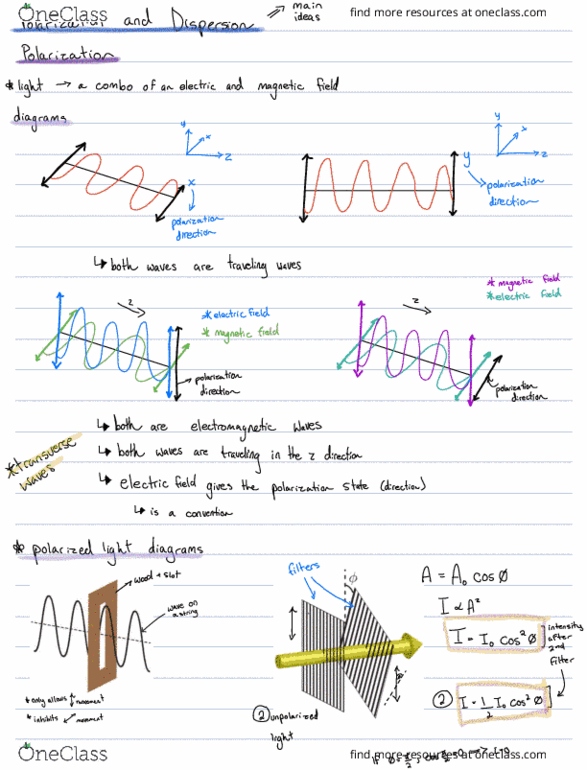 OneClass
find more resources at oneclass.com
Polarization and Dispersion
⇒ main ideas
Polarization
* light → a combo of an electric and magnetic field
diagrams
y
x
z
x
polarization direction
y
x
z
y
polarization direction
↳ both waves are traveling waves
z
* electric field
* magnetic field
polarization direction
z
* magnetic field
* electric field
polarization direction
↳ both are electromagnetic waves
* transverse waves
↳ both waves are traveling in the z direction
↳ electric field gives the polarization state (direction)
↳ is a convention
* polarized light diagrams
wood + slot
wave on a string
* only allows ↕ movement
* inhibits ↗ movement
filters
ϕ
② unpolarized light
A = A₀ cos ϕ
I ∝ A²
I = I₀ cos² ϕ
intensity after 2nd filter
② I = 1/2 I₀ cos² ϕ
OneClass
find more resources at oneclass.com